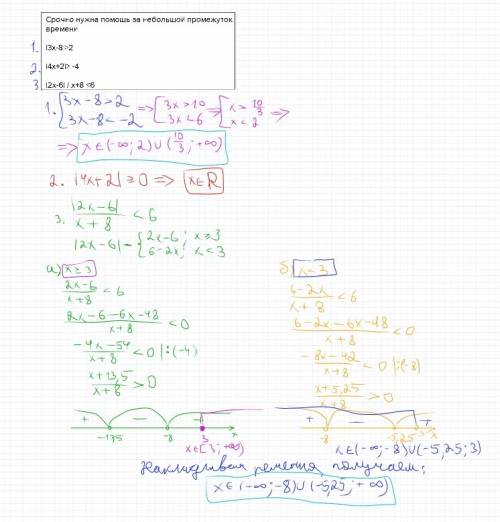 Срочно нужна помощь за небольшой промежуток
времени
1. I3x-8>2
2. I4x+2I> -4
3 I2x-6I / x+8 <6
1. {3x-8>2 3x-8<-2 => [3x>10 3x<6 => [x>10/3 x<2 =>
=> x∈(-∞; 2)∪(10/3; +∞)
2. |4x+2|≥0 => x∈R
3. |2x-6|/x+8 < 6
|2x-6|= {2x-6; x≥3 6-2x; x<3
а) x≥3
2x-6/x+8 < 6
2x-6-6x-48/x+8 < 0
-4x-54/x+8 < 0 |:(-4)
x+13,5/x+8 > 0
+ - +
-13,5 -8 3 x
x∈[3; +∞)
б) x<3
6-2x/x+8 < 6
6-2x-6x-48/x+8 < 0
-8x-42/x+8 < 0 |:(-8)
x+5,25/x+8 > 0
+ - +
-8 -5,25 3 x
x∈(-∞; -8)∪(-5,25; 3)
решения, получаем:
x∈(-∞; -8)∪(-5,25; +∞)